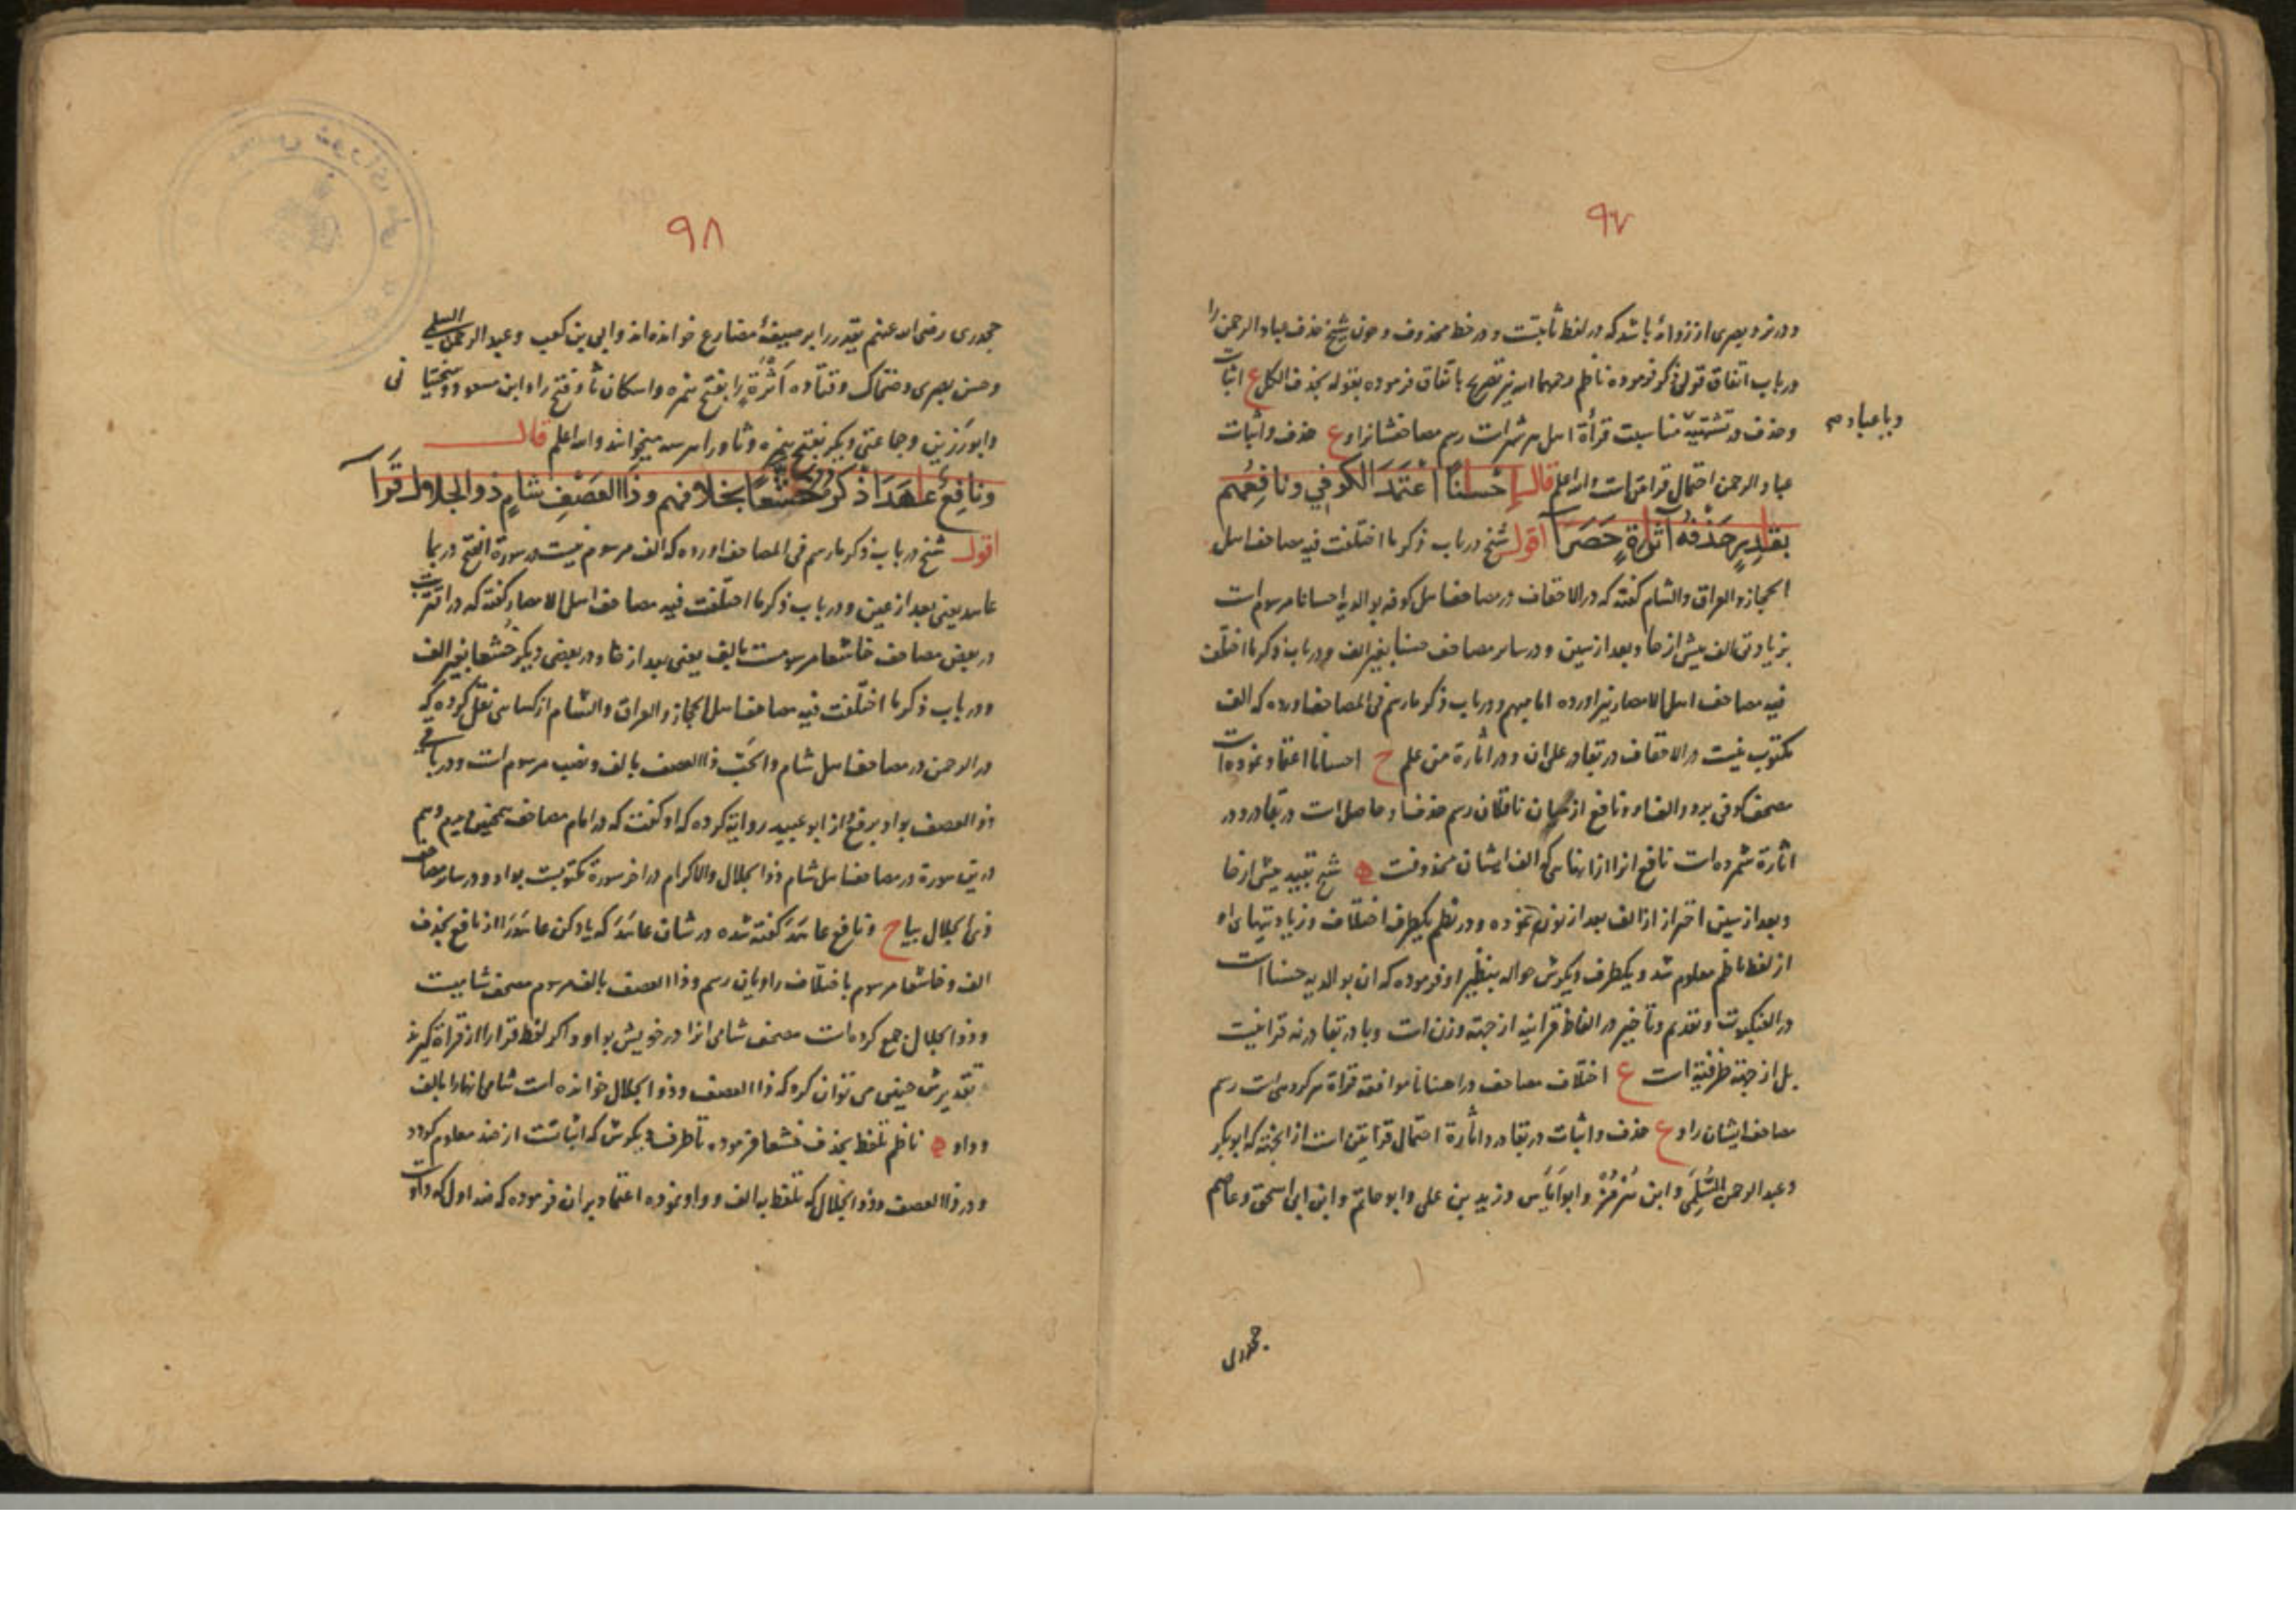 ٩٧
ودر نزد بصری از زوائد باشد که در لفظ ثابتست و در خط محذوف و چون شیخ حذف عباد الرحمن را
در باب اتفاق قولی ذکر فرموده ناظم رحمهما الله نیز تصریح باتفاق فرموده بقوله بحذف الکل ع اثبات
وحذف در تشتهیه مناسبت قرأة اهل هر شهرست رسم مصاحفشانرا و ع حذف واثبات
ویا عباد صح
عباد الرحمن احتمال قرائتین است والله اعلم قال إحسنا اعتمد الکوفی ونافعهم
بقادر حذفه أثارة حصرا اقول شیخ در باب ذکر ما اختلفت فیه مصاحف اهل
الحجاز والعراق والشام گفته که در الاحقاف در مصاحف اهل کوفه بوالدیه احسانا مرسوم است
بزیادتی الف پیش از حا وبعد از سین ودر سایر مصاحف حسنا بغیر الف ودر باب ذکر ما اختلفت
فیه مصاحف اهل الامصار نیز آورده اما مبهم ودر باب ذکر ما رسم فی المصاحف آورده که الف
مکتوب نیست در الاحقاف در بقادر علی ان ودر اثارة من علم ح احسانا اعتماد نموده است
مصحف کوفی برو والف او ونافع از میان ناقلان رسم حذف او حاصل است در بقادر ودر
اثارة شمرده است نافع انرا از انهایی که الف ایشان محذوفست ه شیخ بتقیید پیش از حا
وبعد از سین احتراز از الف بعد از نون نموده ودر نظم یکطرف اختلاف وزیادتیهای او
از لفظ ناظم معلوم شد ویکطرف دیگرش حواله بنظیر او فرموده که ان بوالدیه حسنا است
در العنکبوت وتقدیم وتأخیر در الفاظ قرآنیه از جهة وزن است وبا در بقادر نه قرانیست
بل از جهة ظرفیة است ع اختلاف مصاحف در احسانا موافقه قراة هر گروهی است رسم
مصاحف ایشان را و ع حذف واثبات در بقادر واثارة احتمال قرائتین است از انجهة که ابو بکر
وعبد الرحمن السُّلَمی وابن هُرمُز وابو اَیاس وزید بن علی وابو حاتم وابن ابی اسحق وعاصم
جحدری
٩٨
جحدری رضی الله عنهم یقدر را بر صیغهٔ مضارع خوانده اند وابی بن کعب وعبد الرحمن السلمی
وحسن بصری وضحاک وقتاده أَثْرَة را بفتح همزه واسکان ثا وفتح را وابن مسعود وسختیانی
وابو رَزین وجماعتی دیگر بفتح همزه وثا ورا هر سه میخوانند والله اعلم قال
ونافع عاهد اذکر خشعا بخلافهم وذا العصف شام ذو الجلال قرا
اقول شیخ در باب ذکر ما رسم فی المصاحف آورده که الف مرسوم نیست در سورة الفتح در بما
عاهد یعنی بعد از عین ودر باب ذکر ما اختلفت فیه مصاحف اهل الامصار گفته که در اقتربت
در بعض مصاحف خاشعا مرسومست بالف یعنی بعد از خا ودر بعضی دیگر خُشعا بغیر الف
ودر باب ذکر ما اختلفت فیه مصاحف اهل الحجاز والعراق والشام از کسایی نقل کرده که
در الرحمن در مصاحف اهل شام والحبّ ذا العصف بالف ونصب مرسوم است ودر باقی
ذو العصف بواو برفع واز ابو عبید روایة کرده که او گفت که در امام مصاحف همچنین دیدم وهم
درین سورة در مصاحف اهل شام ذو الجلال والاکرام در اخر سورة مکتوبست بواو ودر سایر مصاحف
ذی الجلال بیا ح ونافع عاهَدَ گفته شده در شان عاهَدَ که یاد کن عاهَدَ را از نافع بحذف
الف وخاشعا مرسوم باختلاف راویان رسم وذا العصف بالف مرسوم مصحف شامیست
وذو الجلال جمع کرده است مصحف شامی انرا در خویش بواو واگر لفظ قرا را از قراة گیرند
تقدیرش چنین می توان کرد که ذا العصف وذو الجلال خوانده است شامی انها را بالف
وواو ه ناظم تلفظ بحذف خشعا فرموده تا طرف دیگرش که اثباتست از ضد معلوم گردد
ودر ذا العصف وذو الجلال که تلفظ بالف وواو نموده اعتماد بران فرموده که ضد اول که واوست